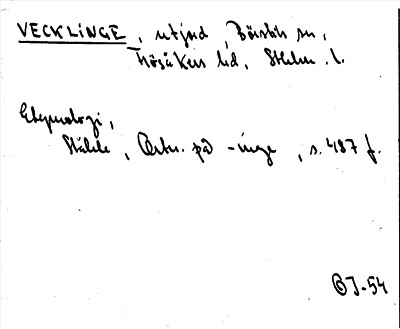 VECKLINGE, utjord, Börstils sn,
Frösåkers hd, Sthlm. l.
Etymologi,
Ståhle, Ortn. på -inge, s. 487 f.
OJ-54